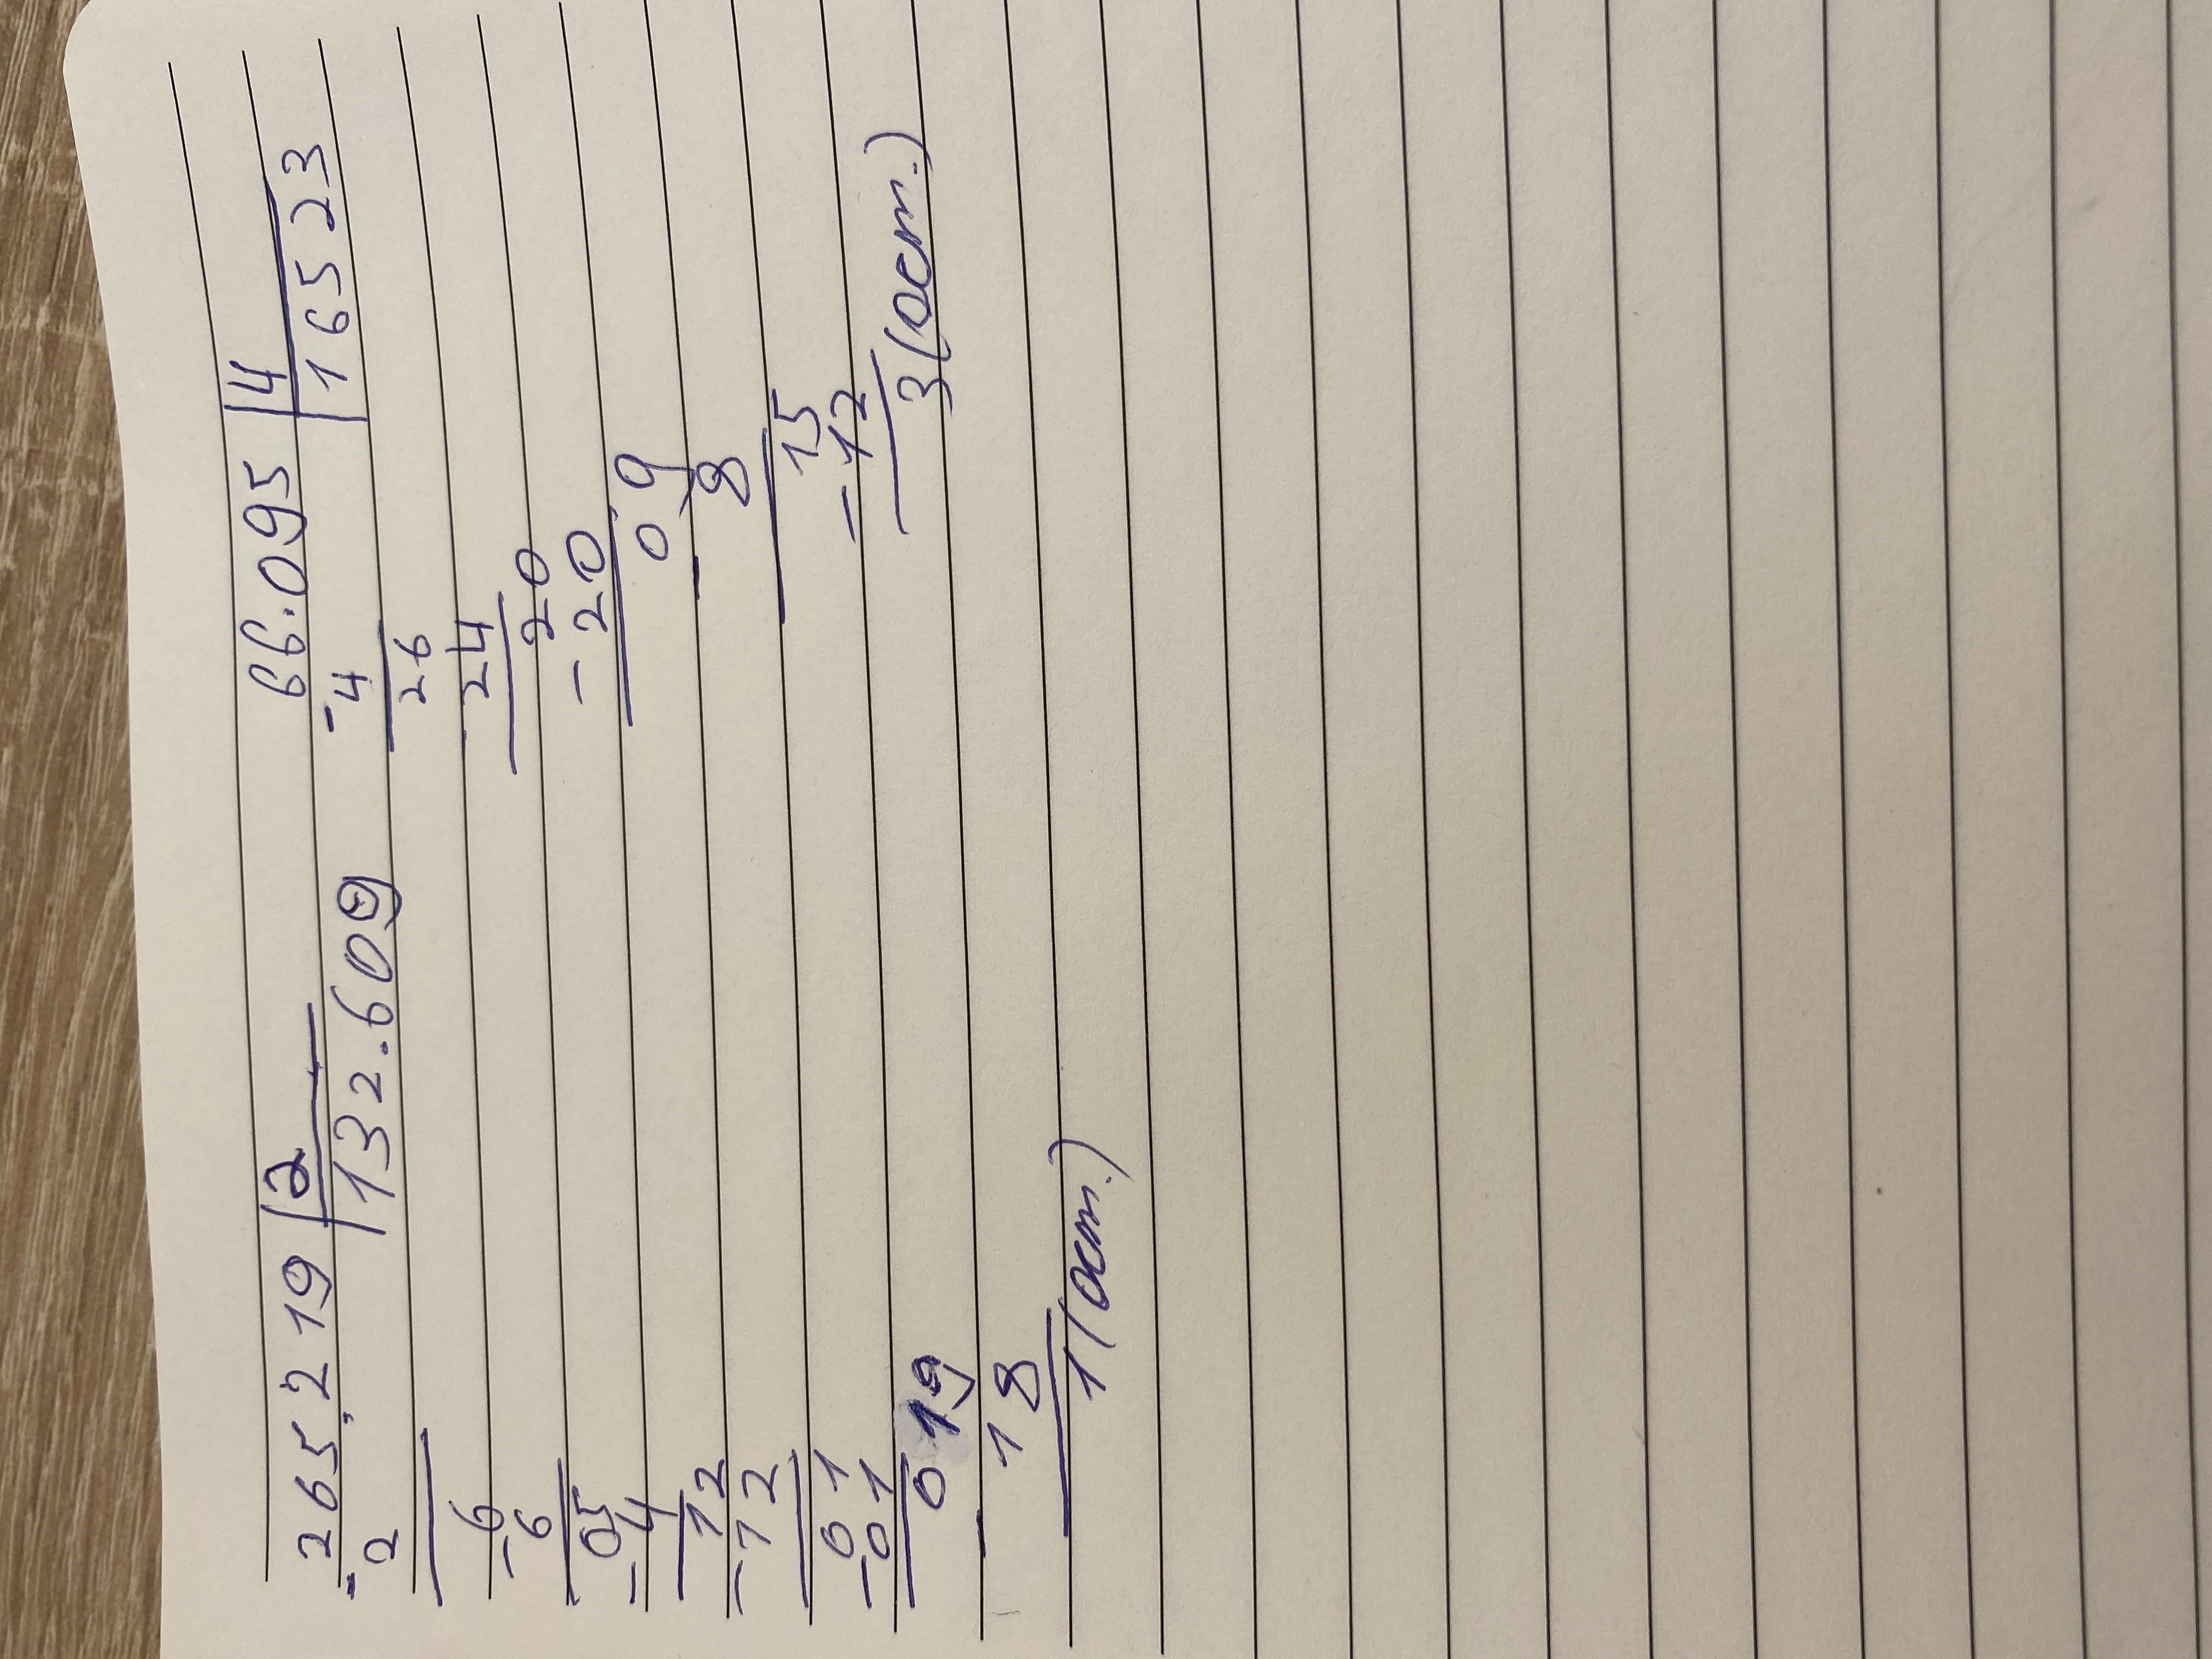 265.219 |2
-2 |132.609
-6
-6
05
-4
12
-12
01
-01
019
-18
1 (ост.)
66.095 |4
-4 |16523
26
24
20
-20
09
-8
15
-12
3 (ост.)